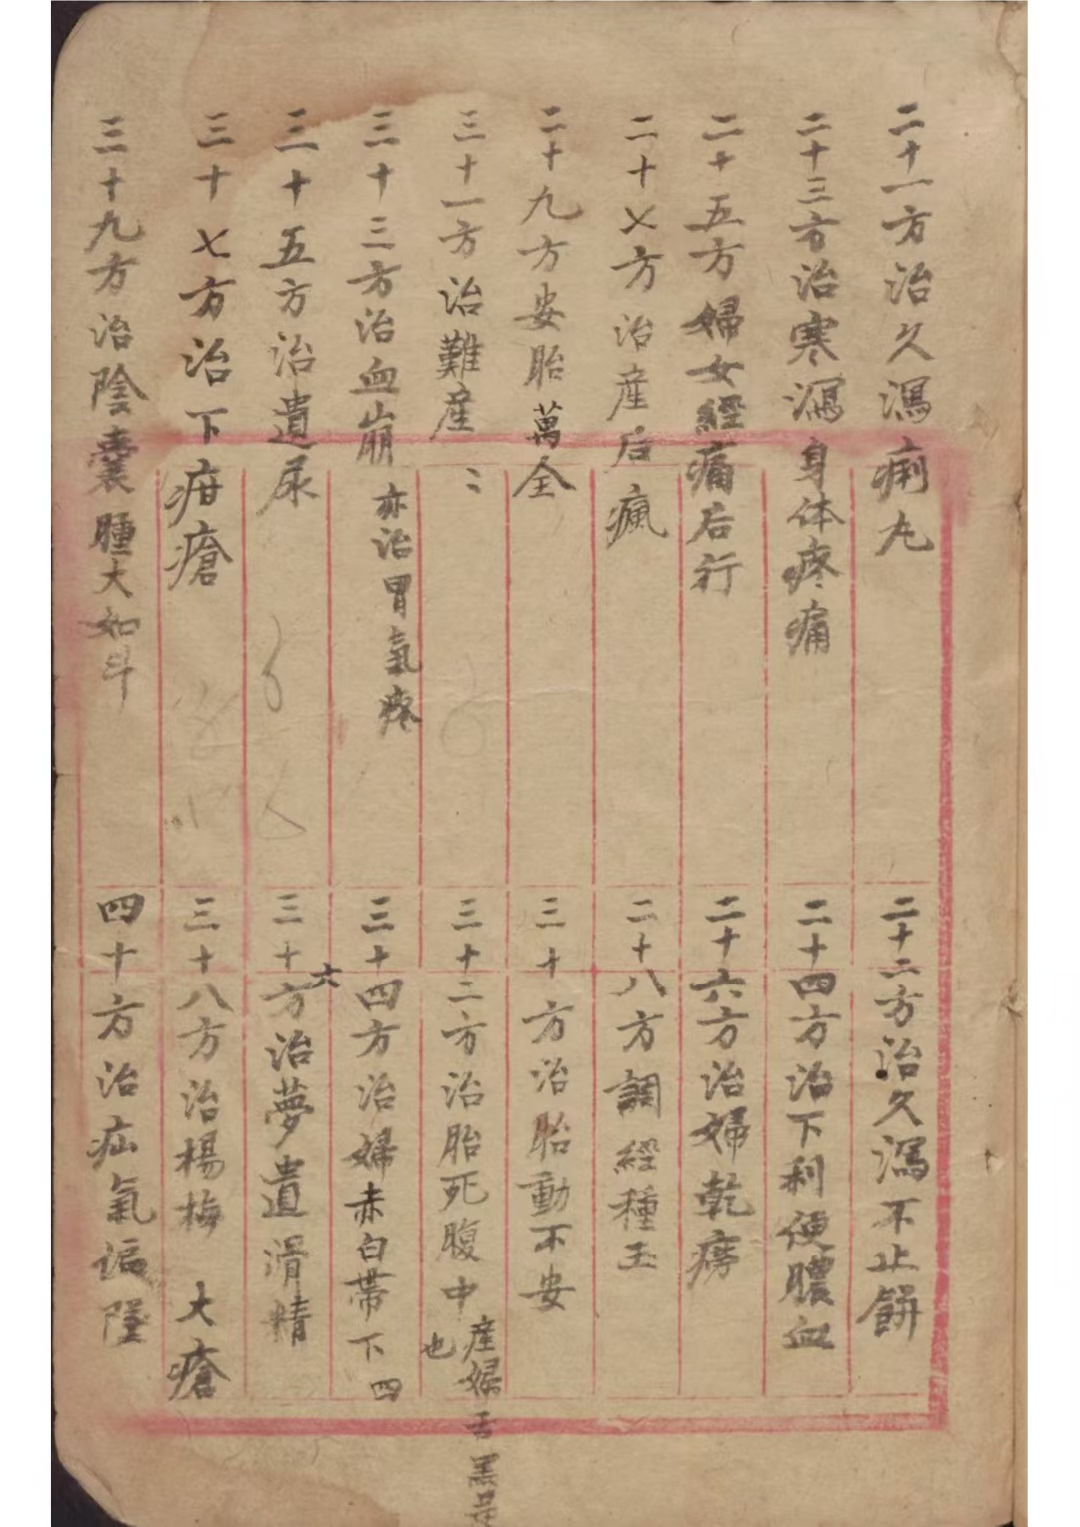 二十一方治久瀉痢丸
二十二方治久瀉不止餅
二十三方治寒瀉身体疼痛
二十四方治下利便膿血
二十五方婦女經痛后行
二十六方治婦乾癆
二十七方治産后瘋
二十八方調經種玉
二十九方安胎萬全
三十方治胎動不安
三十一方治難産〻
三十二方治胎死腹中産婦舌黑是也
三十三方治血崩亦治胃氣疼
三十四方治婦赤白帶下四
三十五方治遺尿
三十六方治夢遺滑精
三十七方治下疳瘡
三十八方治楊梅大瘡
三十九方治陰囊腫大如斗
四十方治疝氣偏墜